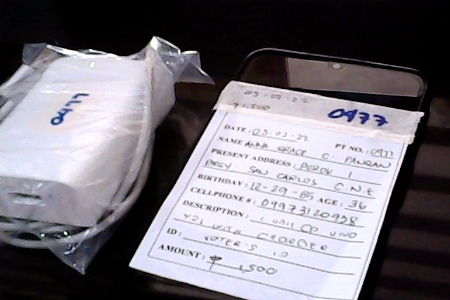 0477
03-03-22
₱1,500
0977
DATE: 03-03-22 PT NO.: 0977
NAME ANNA GRACE C.
PRESENT ADDRESS: PUROK 1
BRGY SAN CARLOS C.N.E
BIRTHDAY: 12-29-85 AGE: 36
CELLPHONE #: 09973120928
DESCRIPTION: 1 UNIT CP VIVO
Y21 WITH CHARGER
ID: VOTER'S ID
AMOUNT: ₱ 1,500